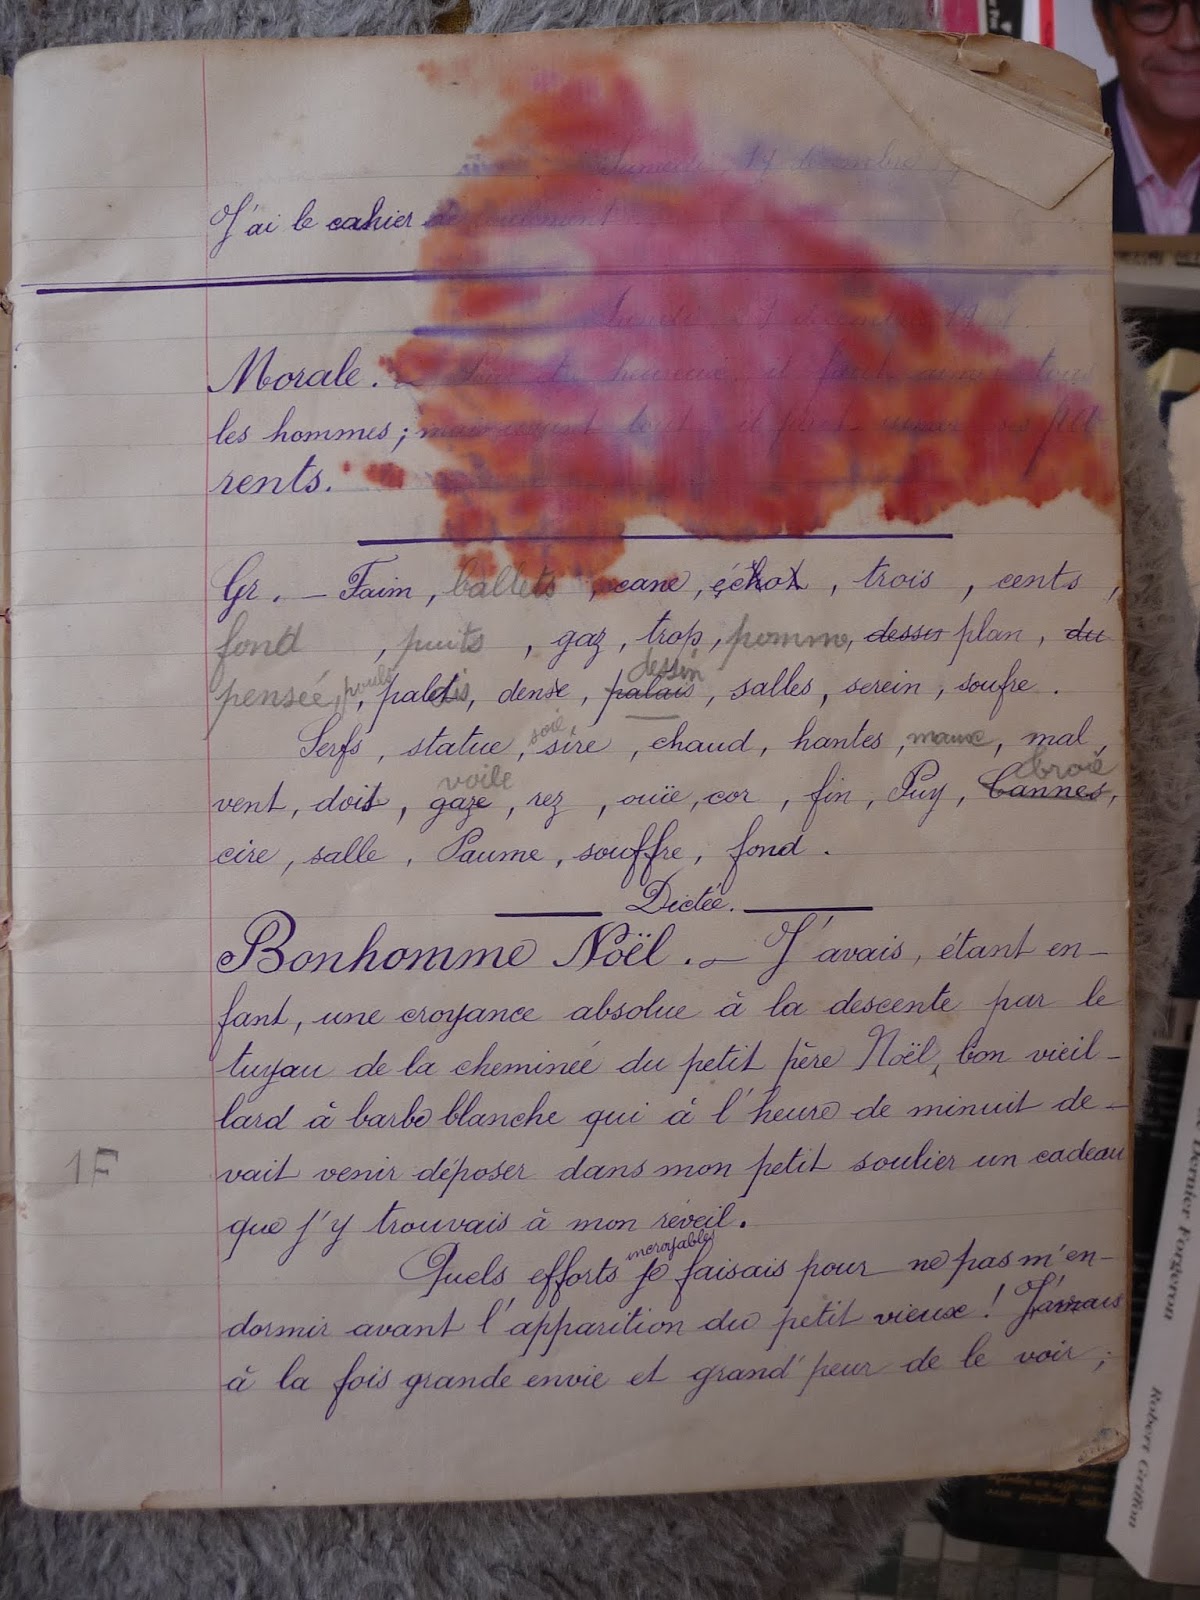 Samedi, 19 décembre
J'ai le cahier de roulement
Lundi 21 décembre
Morale. – Pour être heureux, il faut aimer tous
les hommes ; mais avant tout il faut aimer ses pa
rents.
Gr. – Faim, ballets, cane, échos, trois, cents,
fond, puits, gaz, trop, pomme, dessus plan, du
dessin
pensée, poule, palais, dense, palais, salles, serein, soufre.
soie
Serfs, statue, sire, chaud, hantes, maux, mal,
voile broie
vent, doit, gaze, rez, ouïe, cor, fin, Puy, Cannes,
cire, salle, Paume, souffre, fond.
Dictée.
Bonhomme Noël. – J'avais, étant en-
fant, une croyance absolue à la descente par le
tuyau de la cheminée du petit père Noël, bon vieil-
lard à barbe blanche qui à l'heure de minuit de-
1F
vait venir déposer dans mon petit soulier un cadeau
que j'y trouvais à mon réveil.
incroyables
Quels efforts je faisais pour ne pas m'en-
dormir avant l'apparition du petit vieux ! J'avais
à la fois grande envie et grand'peur de le voir ;
Dernier Forgeron
Robert Grillon